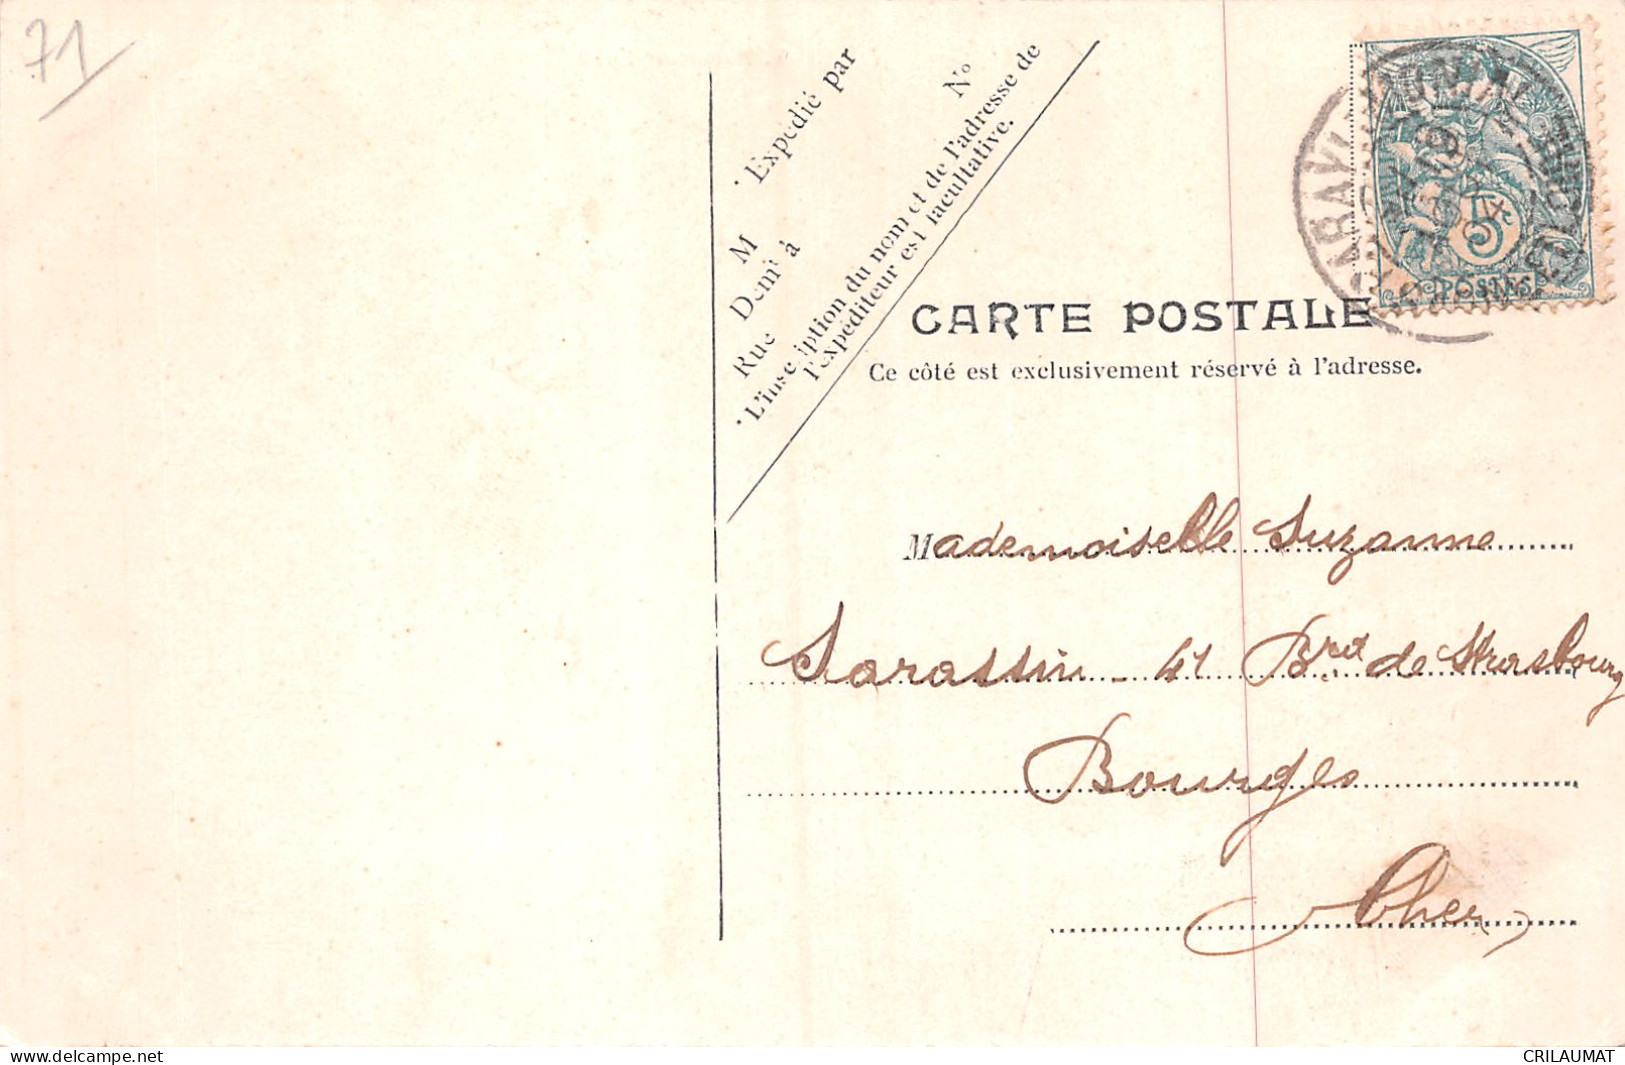 71
Expédié par
M
Demt à
Rue
Nº
L'inscription du nom et de l'adresse de
l'expéditeur est facultative.
5
POSTES
CARTE POSTALE
Ce côté est exclusivement réservé à l'adresse.
Mademoiselle Suzanne
Sarassin - 41 Brd de Strasbourg
Bourges
Cher
www.delcampe.net
CRILAUMAT